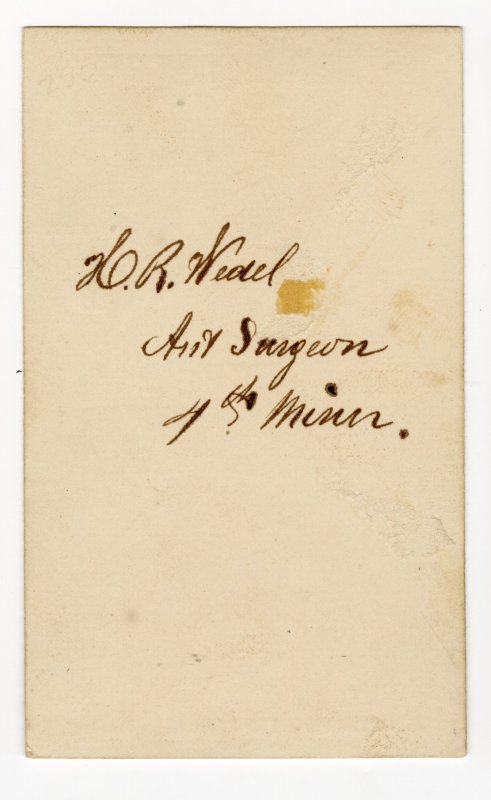 H. R. Wedel
Asst Surgeon
4th Minn.